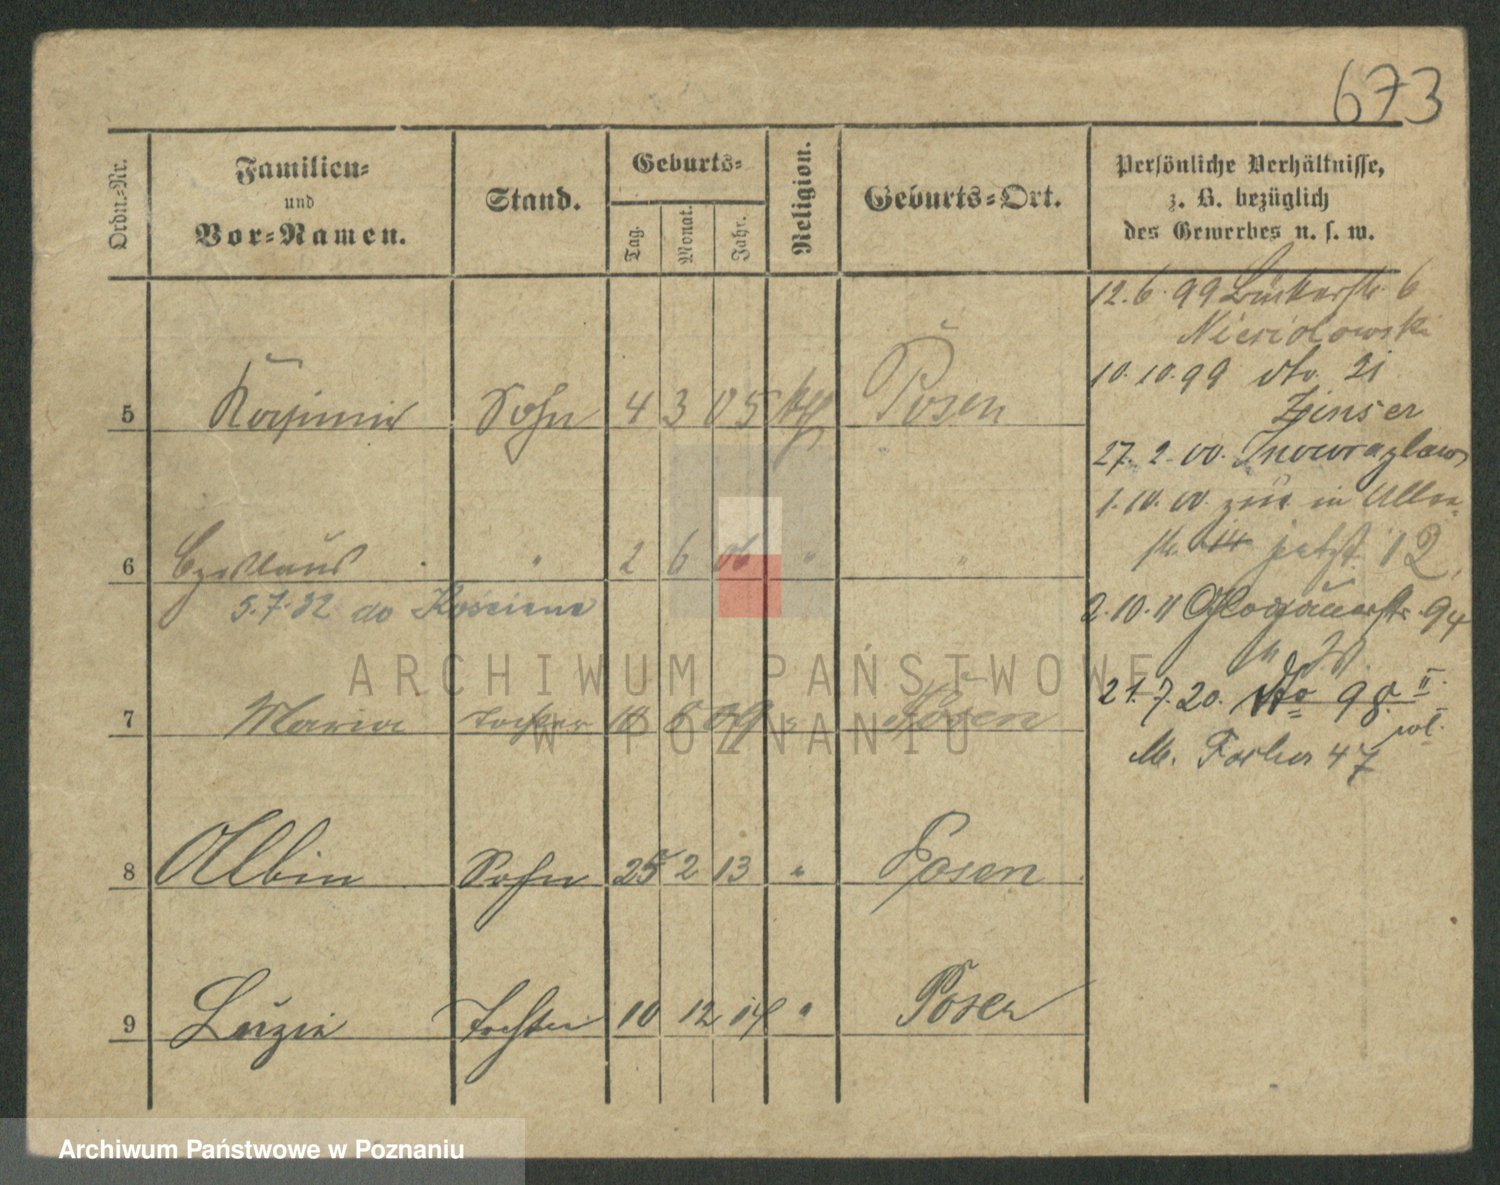 673
Ordn.-Nr.
Familien-
und
Vor-Namen.
Stand.
Geburts-
Tag.
Monat.
Jahr.
Religion.
Geburts-Ort.
Persönliche Verhältnisse,
z. B. bezüglich
des Gewerbes u. s. w.
5 Kasimir Sohn 4 3 05 kth Posen
6 Czeslaus " 2 6 06 " "
5.7.32 do Kościana
7 Maria Tochter 6 09 " Posen
8 Albin Sohn 25 2 13 " Posen
9 Luzie Tochter 10 12 14 " Posen
12.6.99 6
Niesiolowski
10.10.99 dto. 21
Zinser
27.2.00. Inowrazlaw
1.10.00. zur. in
str. 14 jetzt 12
2.10.11 Glogauerstr. 94
21.7.20. dto 98 II
wl.
M. 47
ARCHIWUM PAŃSTWOWE
W POZNANIU
Archiwum Państwowe w Poznaniu